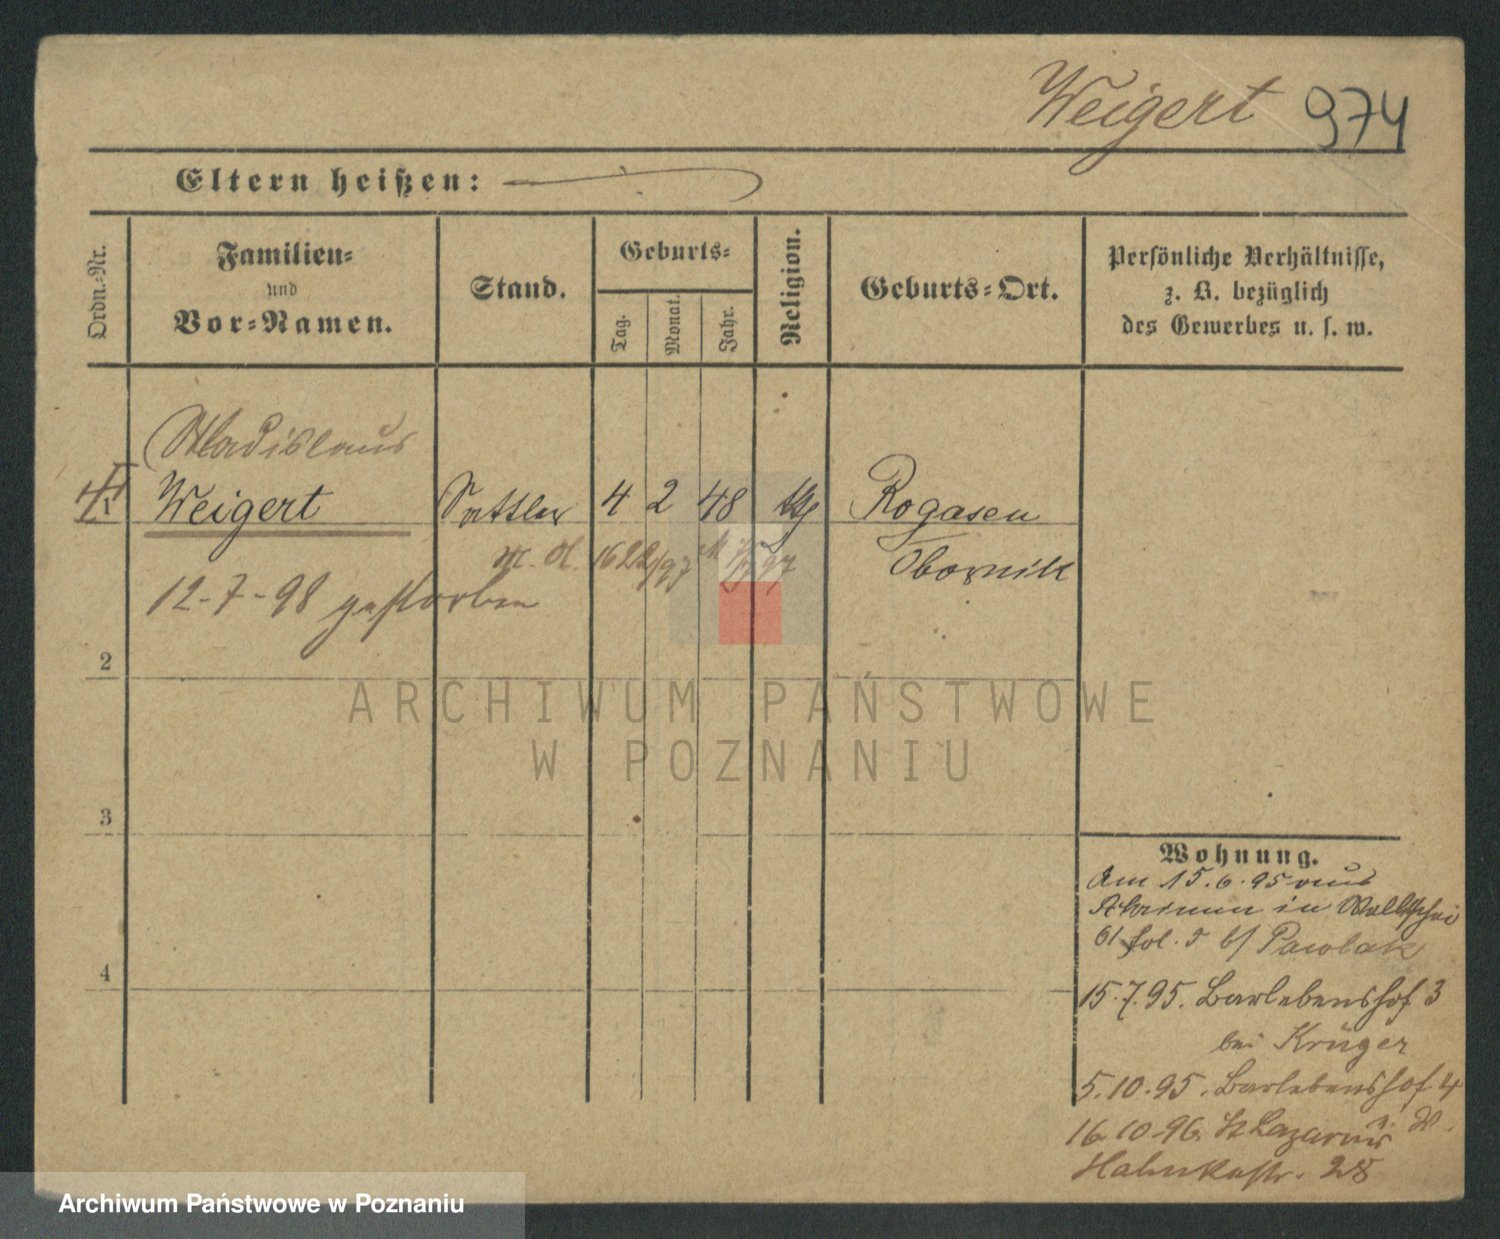 Weigert 974
Eltern heißen:
Ordn.-Nr.
Familien-
und
Vor-Namen.
Stand.
Geburts-
Tag.
Monat.
Jahr.
Religion.
Geburts-Ort.
Persönliche Verhältnisse,
z. B. bezüglich
des Gewerbes u. s. w.
Wladislaus
Weigert Sattler 4 2 48 Rogasen
Obornik
12-7-98 gestorben
2
3
4
Wohnung.
Am 15.6.95 aus
in
61 fol. 5 b/ Pawlak
15.7.95. Barlebenshof 3
bei Krüger
5.10.95. Barlebenshof 4
16.10.96. St Lazarus
28
ARCHIWUM PAŃSTWOWE
W POZNANIU
Archiwum Państwowe w Poznaniu